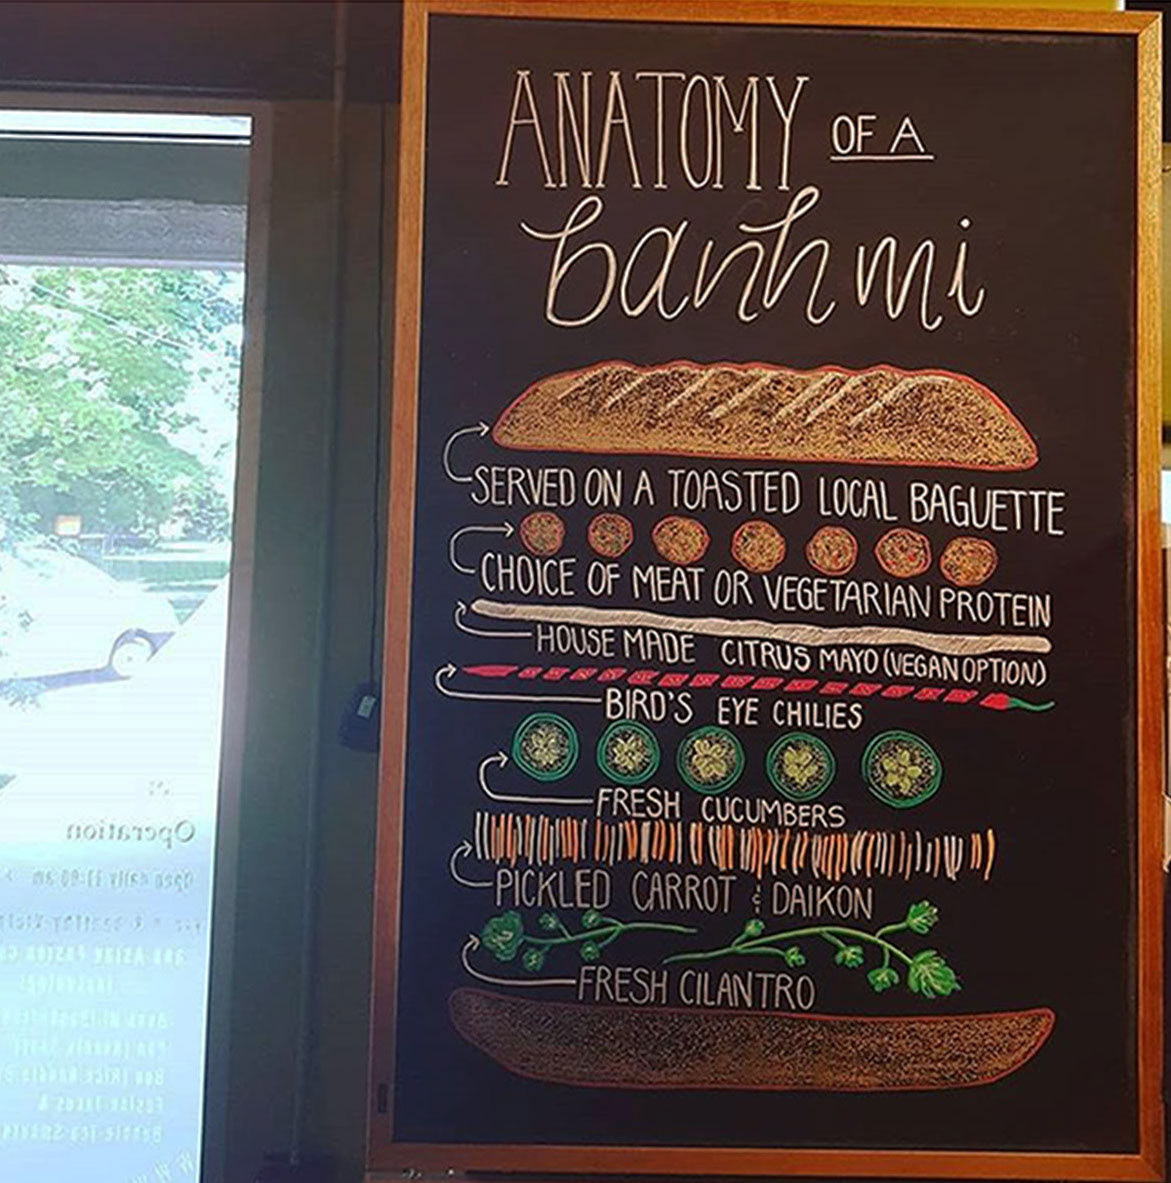 ANATOMY OF A
banh mi
SERVED ON A TOASTED LOCAL BAGUETTE
CHOICE OF MEAT OR VEGETARIAN PROTEIN
HOUSE MADE CITRUS MAYO (VEGAN OPTION)
BIRD'S EYE CHILIES
FRESH CUCUMBERS
PICKLED CARROT & DAIKON
FRESH CILANTRO
Operation
Open daily 11:00 am